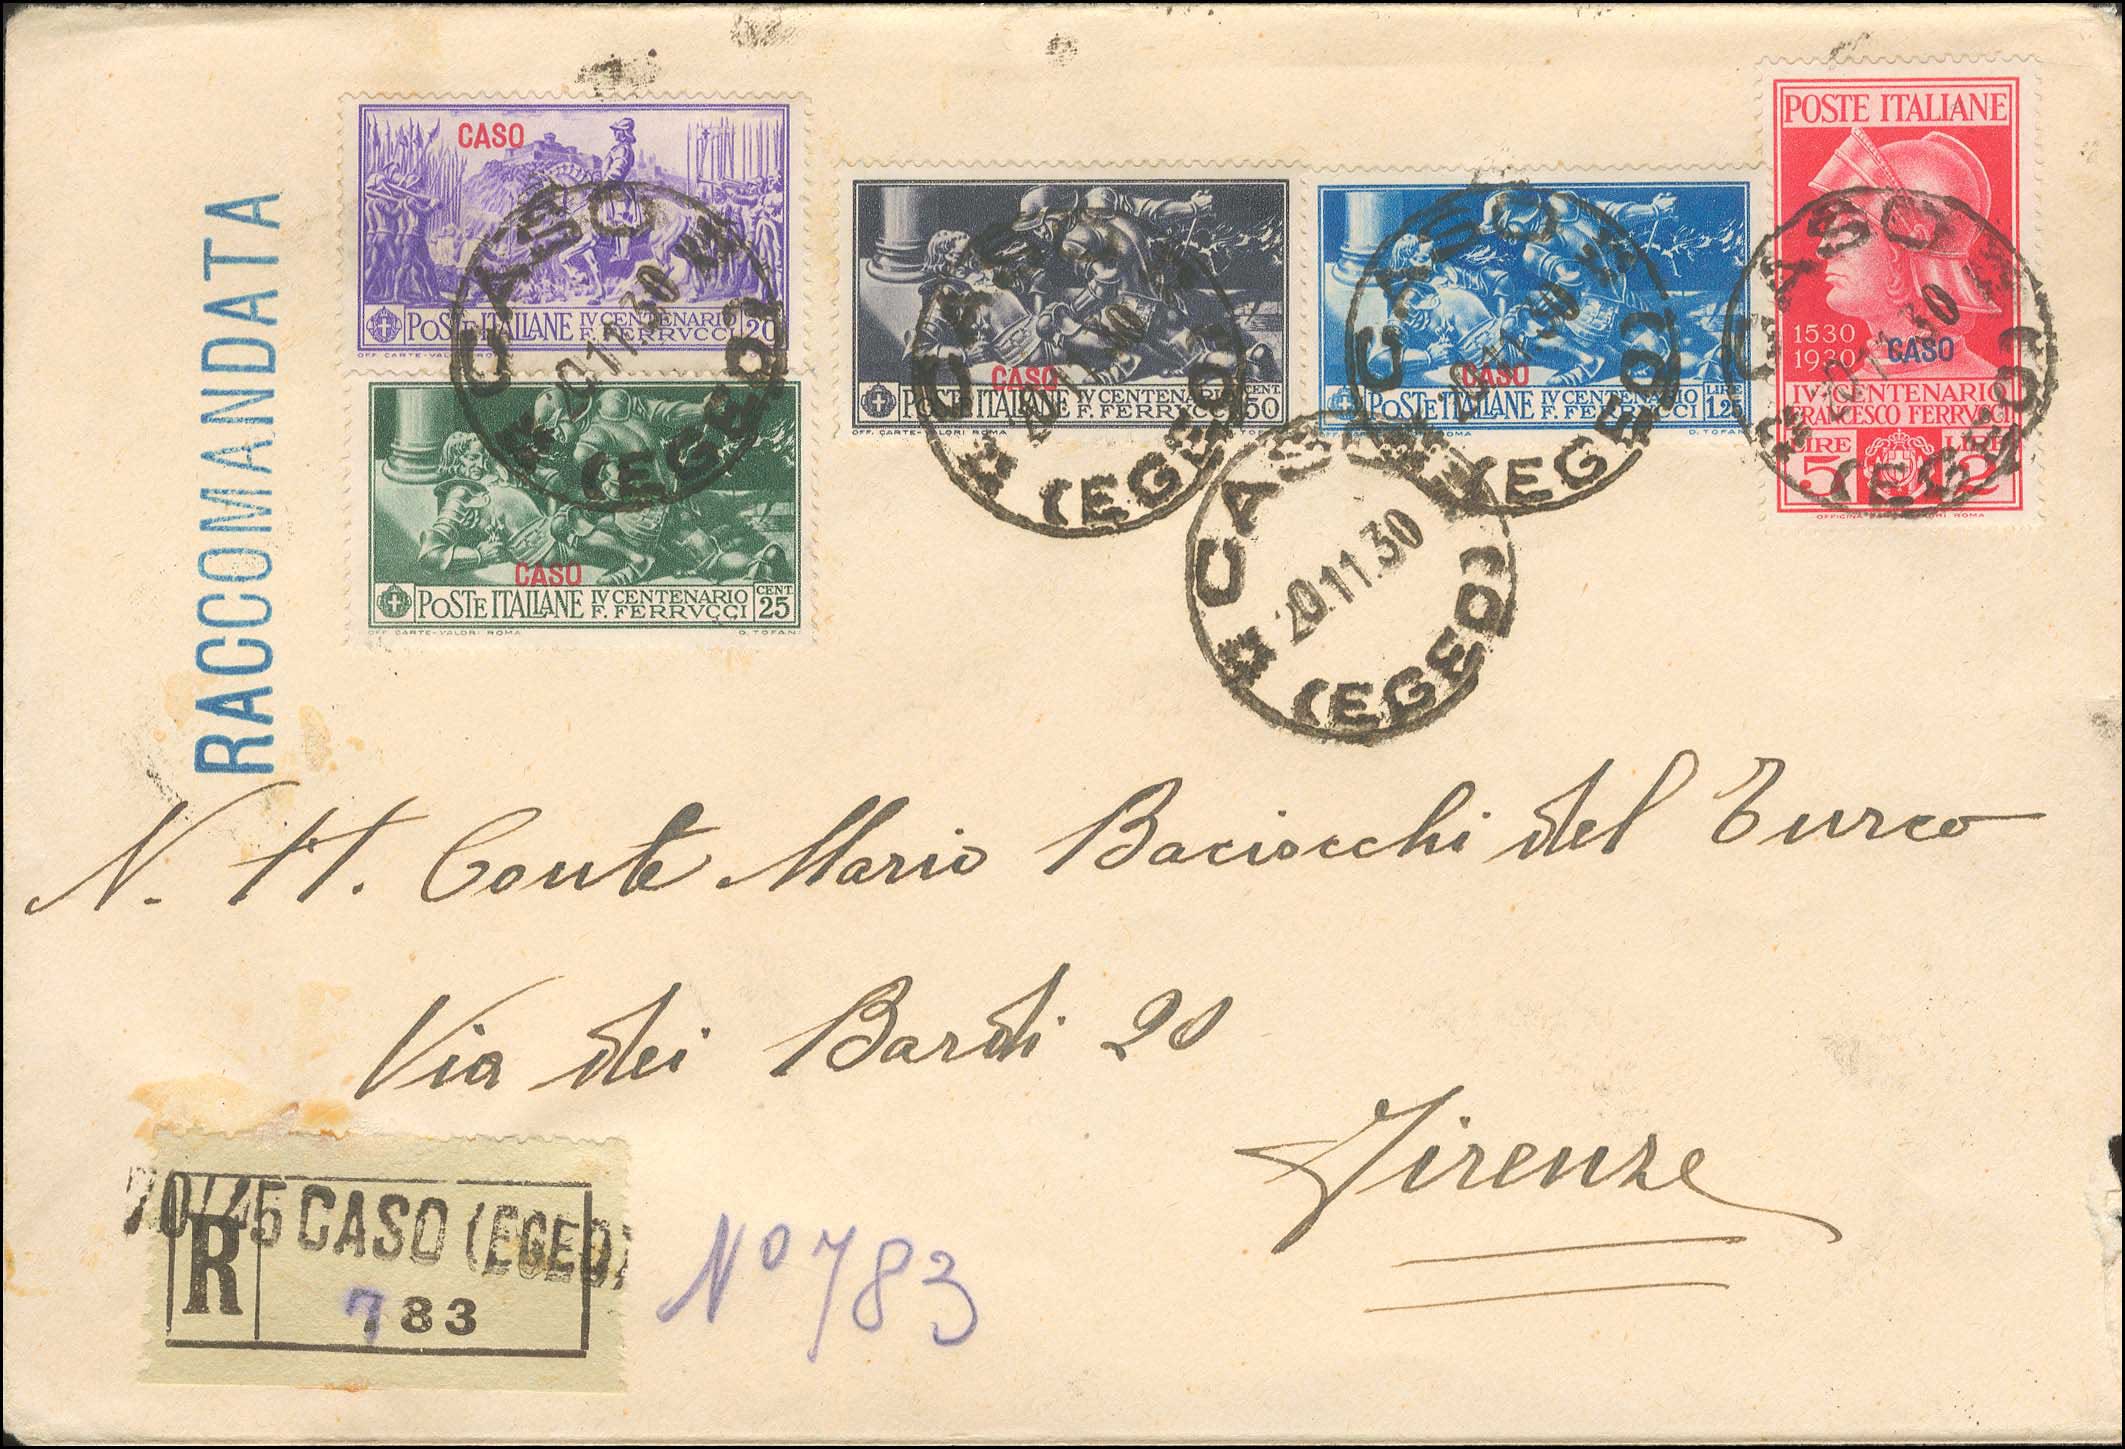 RACCOMANDATA
CASO
POSTE ITALIANE IV CENTENARIO F. FERRVCCI 20
OFF. CARTE-VALORI ROMA
CASO
POSTE ITALIANE IV CENTENARIO F. FERRVCCI CENT. 25
OFF. CARTE-VALORI ROMA D. TOFANI
CASO
POSTE ITALIANE IV CENTENARIO F. FERRVCCI CENT. 50
OFF. CARTE-VALORI ROMA
CASO
POSTE ITALIANE IV CENTENARIO F. FERRVCCI LIRE 1.25
ROMA D. TOFANI
POSTE ITALIANE
1530
1930
CASO
IV CENTENARIO
FRANCESCO FERRVCCI
LIRE LIRE
5 2
CASO
20.11.30
(EGEO)
CASO
20.11.30
(EGEO)
CASO
20.11.30
(EGEO)
CASO
20.11.30
(EGEO)
CASO
20.11.30
(EGEO)
N. H. Conte Mario Baciocchi del Turco
Via dei Bardi 20
Firenze
CASO (EGEO)
R
783
No 783